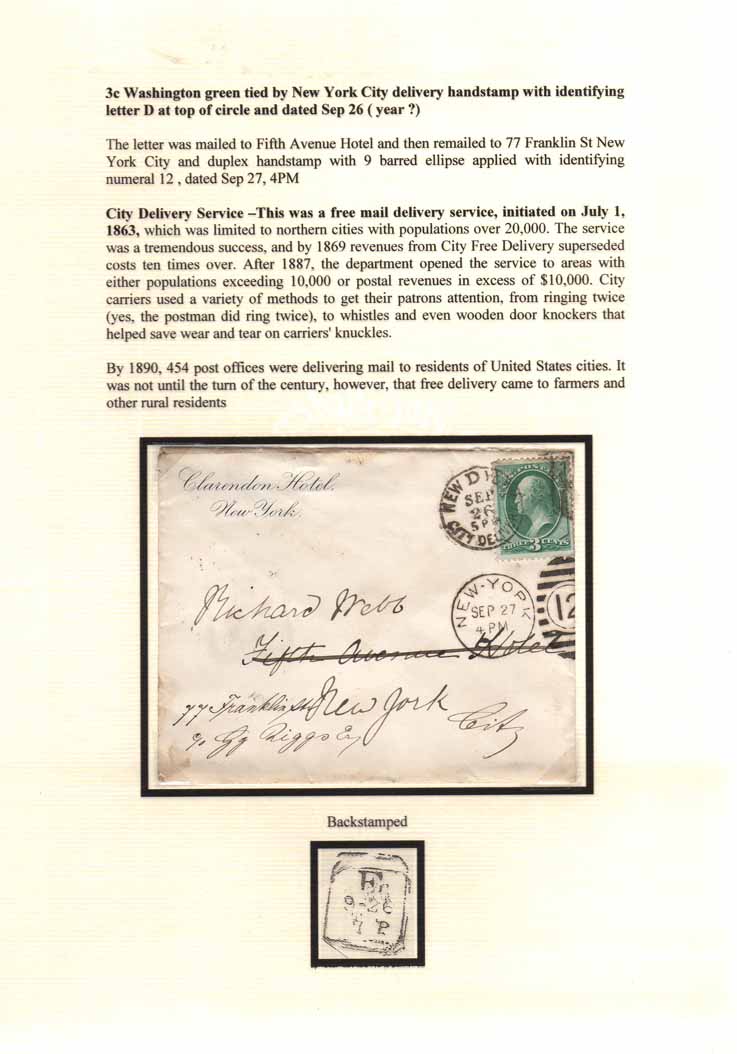 3c Washington green tied by New York City delivery handstamp with identifying
letter D at top of circle and dated Sep 26 ( year ?)
The letter was mailed to Fifth Avenue Hotel and then remailed to 77 Franklin St New
York City and duplex handstamp with 9 barred ellipse applied with identifying
numeral 12 , dated Sep 27, 4PM
City Delivery Service –This was a free mail delivery service, initiated on July 1,
1863, which was limited to northern cities with populations over 20,000. The service
was a tremendous success, and by 1869 revenues from City Free Delivery superseded
costs ten times over. After 1887, the department opened the service to areas with
either populations exceeding 10,000 or postal revenues in excess of $10,000. City
carriers used a variety of methods to get their patrons attention, from ringing twice
(yes, the postman did ring twice), to whistles and even wooden door knockers that
helped save wear and tear on carriers' knuckles.
By 1890, 454 post offices were delivering mail to residents of United States cities. It
was not until the turn of the century, however, that free delivery came to farmers and
other rural residents
Clarendon Hotel.
New York.
NEW D
SEP
26
5 P
CITY DEL
THREE 3 CENTS
NEW-YORK
SEP 27
4 PM
12
Richard Webb
Fifth Avenue Hotel
77 Franklin St New York
City
c/o Riggs Esq
Backstamped
E
9-26
7 P